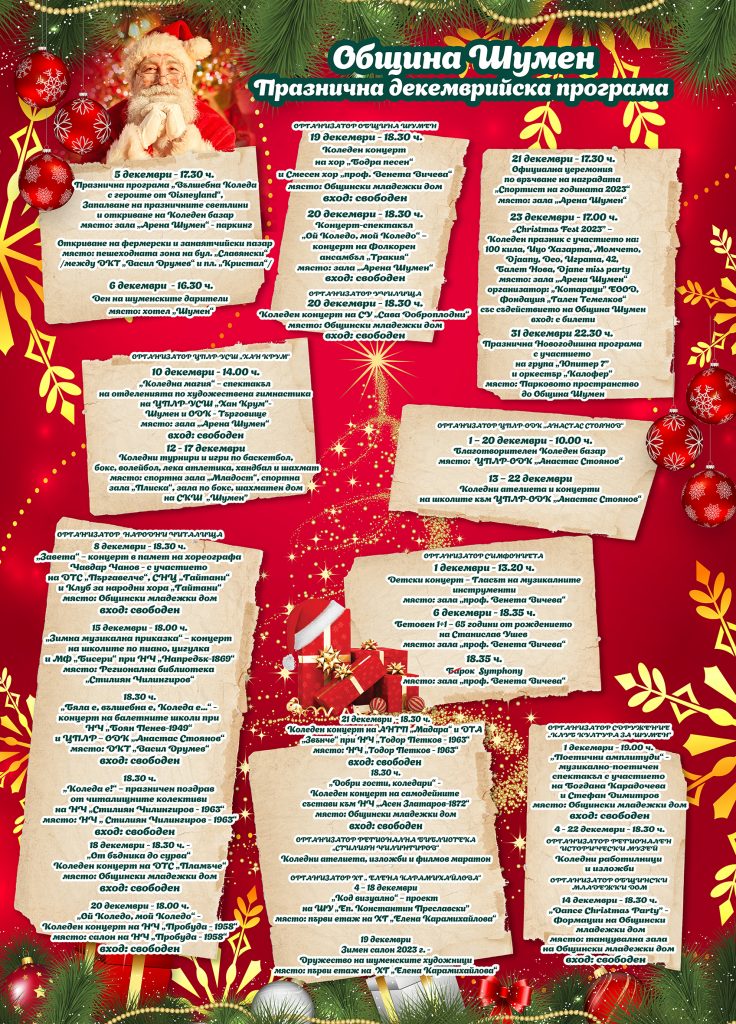 Община Шумен
Празнична декемврийска програма
5 декември - 17.30 ч.
Празнична програма „Вълшебна Коледа
с героите от Disneyland",
Запалване на празничните светлини
и откриване на Коледен базар
място: зала „Арена Шумен" - паркинг
Откриване на фермерски и занаятчийски пазар
място: пешеходната зона на бул. „Славянски"
/между ДКТ „Васил Друмев" и пл. „Кристал"/
6 декември - 16.30 ч.
Ден на шуменските дарители
място: хотел „Шумен"
ОРГАНИЗАТОР ОБЩИНА ШУМЕН
19 декември - 18.30 ч.
Коледен концерт
на хор „Бодра песен"
и Смесен хор „проф. Венета Вичева"
място: Общински младежки дом
вход: свободен
20 декември - 18.30 ч.
Концерт-спектакъл
„Ой Коледо, мой Коледо" –
концерт на Фолкорен
ансамбъл „Тракия"
място: зала „Арена Шумен"
вход: свободен
ОРГАНИЗАТОР УЧИЛИЩА
20 декември - 18.30 ч.
Коледен концерт на СУ „Сава Доброплодни"
място: Общински младежки дом
вход: свободен
21 декември - 17.30 ч.
Официална церемония
по връчване на наградата
„Спортист на годината 2023"
място: зала „Арена Шумен"
23 декември - 17.00 ч.
„Christmas Fest 2023" –
Коледен празник с участието на:
100 кила, Цуцо Хазарта, Момчето,
Djaany, Део, Играта, 42,
Балет Нова, Djane miss party
място: зала „Арена Шумен"
организатор: „Котараци" ЕООД,
Фондация „Гален Темелков"
със съдействието на Община Шумен
вход: с билети
31 декември 22.30 ч.
Празнична Новогодишна програма
с участието
на група „Юпитер 7"
и оркестър „Калофер"
място: Парковото пространство
до Община Шумен
ОРГАНИЗАТОР ЦПЛР-УСШ „ХАН КРУМ"
10 декември - 14.00 ч.
„Коледна магия" – спектакъл
на отделенията по художествена гимнастика
на ЦПЛР-УСШ „Хан Крум"-
Шумен и ОДК - Търговище
място: зала „Арена Шумен"
вход: свободен
12 - 17 декември
Коледни турнири и игри по баскетбол,
бокс, волейбол, лека атлетика, хандбал и шахмат
място: спортна зала „Младост", спортна
зала „Плиска", зала по бокс, шахматен дом
на СКШ „Шумен"
ОРГАНИЗАТОР ЦПЛР-ОДК „АНАСТАС СТОЯНОВ"
1 – 20 декември - 10.00 ч.
Благотворителен Коледен базар
място: ЦПЛР-ОДК „Анастас Стоянов"
13 – 22 декември
Коледни ателиета и концерти
на школите към ЦПЛР-ОДК „Анастас Стоянов"
ОРГАНИЗАТОР НАРОДНИ ЧИТАЛИЩА
8 декември - 18.30 ч.
„Завета" – концерт в памет на хореографа
Чавдар Чанов - с участието
на ДТС „Пъргавелче", СНЦ „Гайтани"
и Клуб за народни хора „Гайтани"
място: Общински младежки дом
вход: свободен
15 декември - 18.00 ч.
„Зимна музикална приказка" – концерт
на школите по пиано, цигулка
и МФ „Бисери" при НЧ „Напредък-1869"
място: Регионална библиотека
„Стилиян Чилингиров"
18.30 ч.
„Бяла е, вълшебна е, Коледа е…" -
концерт на балетните школи при
НЧ „Боян Пенев-1949"
и ЦПЛР – ОДК „Анастас Стоянов"
място: ДКТ „Васил Друмев"
вход: свободен
18.30 ч.
„Коледа е!" – празничен поздрав
от читалищните колективи
на НЧ „Стилиян Чилингиров - 1963"
място: НЧ „ Стилиян Чилингиров - 1963"
вход: свободен
18 декември - 18.30 ч. -
„От бъдника до сурва"
Коледен концерт на ДТС „Пламъче"
място: Общински младежки дом
вход: свободен
20 декември - 18.00 ч.
„Ой Коледо, мой Коледо" –
Коледен концерт на НЧ „Пробуда - 1958"
място: салон на НЧ „Пробуда - 1958"
вход: свободен
ОРГАНИЗАТОР СИМФОНИЕТА
1 декември - 13.20 ч.
Детски концерт – Гласът на музикалните
инструменти
място: зала „проф. Венета Вичева"
6 декември - 18.35 ч.
Бетовен 1+1 – 65 години от рождението
на Станислав Ушев
място: зала „проф. Венета Вичева"
18.35 ч.
Барок Symphony
място: зала „проф. Венета Вичева"
21 декември - 18.30 ч.
Коледен концерт на АНТП „Мадара" и ДТА
„Звънче" при НЧ „Тодор Петков - 1963"
място: НЧ „Тодор Петков - 1963"
вход: свободен
18.30 ч.
„Добри гости, коледари" -
Коледен концерт на самодейните
състави към НЧ „Асен Златаров-1872"
място: Общински младежки дом
вход: свободен
ОРГАНИЗАТОР РЕГИОНАЛНА БИБЛИОТЕКА
„СТИЛИЯН ЧИЛИНГИРОВ"
Коледни ателиета, изложби и филмов маратон
ОРГАНИЗАТОР ХГ „ЕЛЕНА КАРАМИХАЙЛОВА"
4 – 18 декември
„Код визуално" – проект
на ШУ „Еп. Константин Преславски"
място: първи етаж на ХГ „Елена Карамихайлова"
19 декември
Зимен салон 2023 г. -
Дружество на шуменските художници
място: първи етаж на ХГ „Елена Карамихайлова"
ОРГАНИЗАТОР СДРУЖЕНИЕ
„КЛУБ КУЛТУРА ЗА ШУМЕН"
1 декември - 19.00 ч.
„Поетични амплитуди" –
музикално-поетичен
спектакъл с участието
на Богдана Карадочева
и Стефан Димитров
място: Общински младежки дом
вход: свободен
4 - 22 декември - 18.30 ч.
ОРГАНИЗАТОР РЕГИОНАЛЕН
ИСТОРИЧЕСКИ МУЗЕЙ
Коледни работилници
и изложби
ОРГАНИЗАТОР ОБЩИНСКИ
МЛАДЕЖКИ ДОМ
14 декември - 18.30 ч.
„Dance Christmas Party" –
Формации на Общински
младежки дом
място: танцувална зала
на Общински младежки дом
вход: свободен